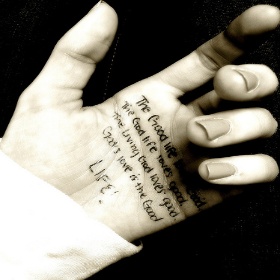 The Good life
The God life loves good
The Living God loves good
God's love is the Good
LIFE!